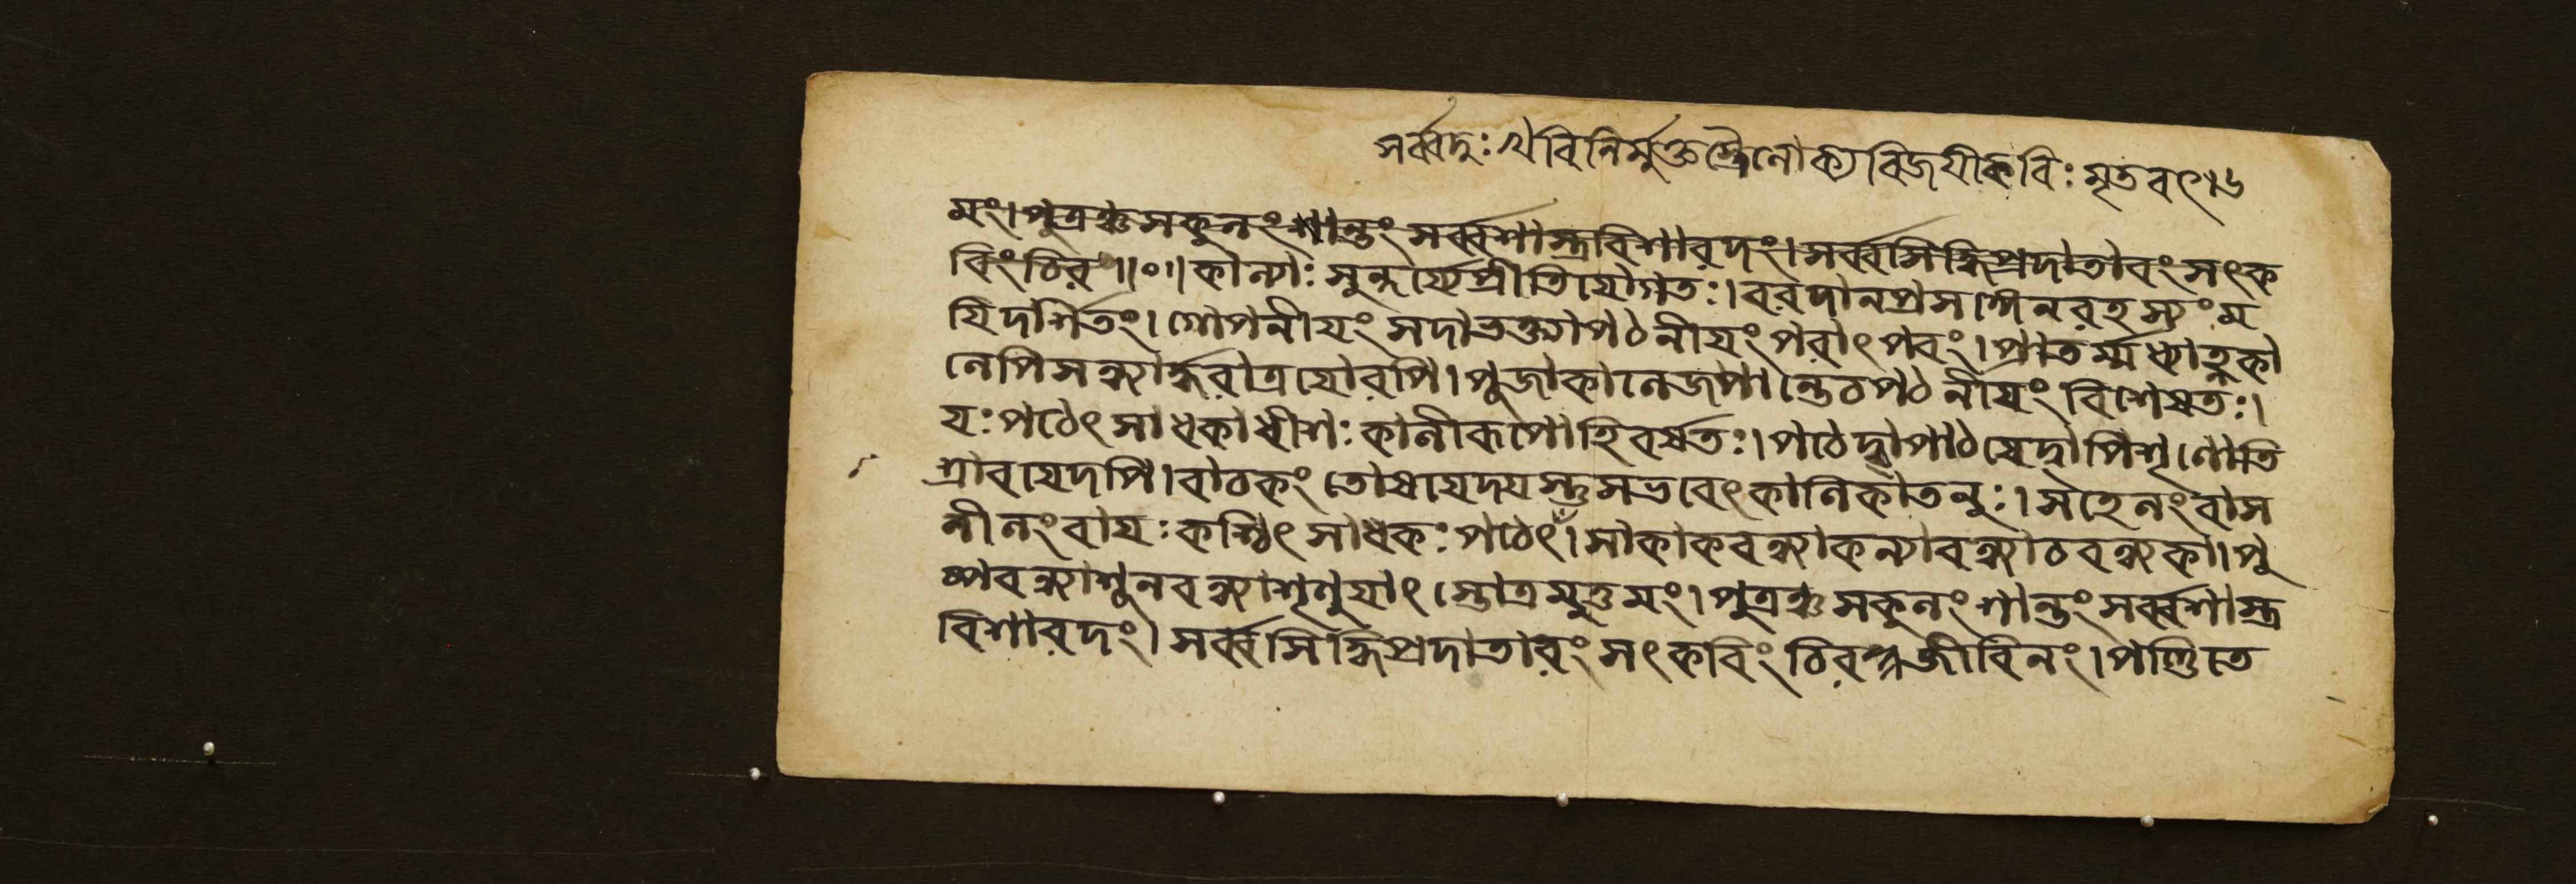 সর্ব্বদুঃখবিনির্মুক্তস্ত্রৈলোক্যবিজযীকবিঃমৃতবৎ।৬
মং।পুত্রঞ্চসকুলংশান্তংসর্ব্বশাস্ত্রবিশারদং।সর্ব্বসিদ্ধিপ্রদাতারংসৎক
বিংচির॥০॥কাল্যাঃসুন্দর্য্যেপ্রীতিযোগতঃ।বরদানপ্রসঙ্গেনরহস্যংম
যিদর্শিতং।গোপনীযংসদাভক্ত্যাপঠনীযংপরাৎপরং।প্রাতর্ম্মধ্যাহ্নকা
লেপিসন্ধ্যার্দ্ধরাত্রযোরপি।পুজাকালেজপান্তেচপঠনীযংবিশেষতঃ।
যঃপঠেৎসাধকাধীশঃকালীরূপোহিবর্ষতঃ।পঠেদ্বাপাঠযেদ্বাপিশৃণোতি
শ্রাবযেদপি।বাচকংতোষযেদযস্তুসভবেৎকালিকাতনুঃ।সহেলংবাস
লীলংবাযঃকশ্চিৎসাধকঃপঠেৎ।সাকাকবন্ধ্যাকন্যাবন্ধ্যাচবন্ধ্যকা।পু
ষ্পবন্ধ্যাশূলবন্ধ্যাশৃনুযাৎস্তোত্রমুত্তমং।পুত্রঞ্চসকুলংশান্তংসর্ব্বশাস্ত্র
বিশারদং।সর্ব্বসিদ্ধিপ্রদাতারংসৎকবিংচিরজীবিনং।পণ্ডিতে